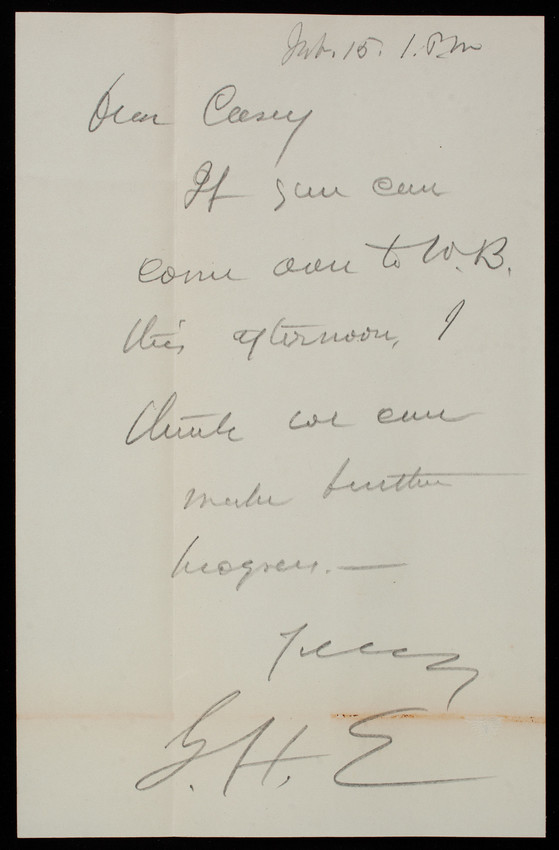 Feb. 15. 1. P.m
Dear Casey
If you can
come over to W.B.
this afternoon, I
think we can
make further
progress. —
Truly
G. H. E